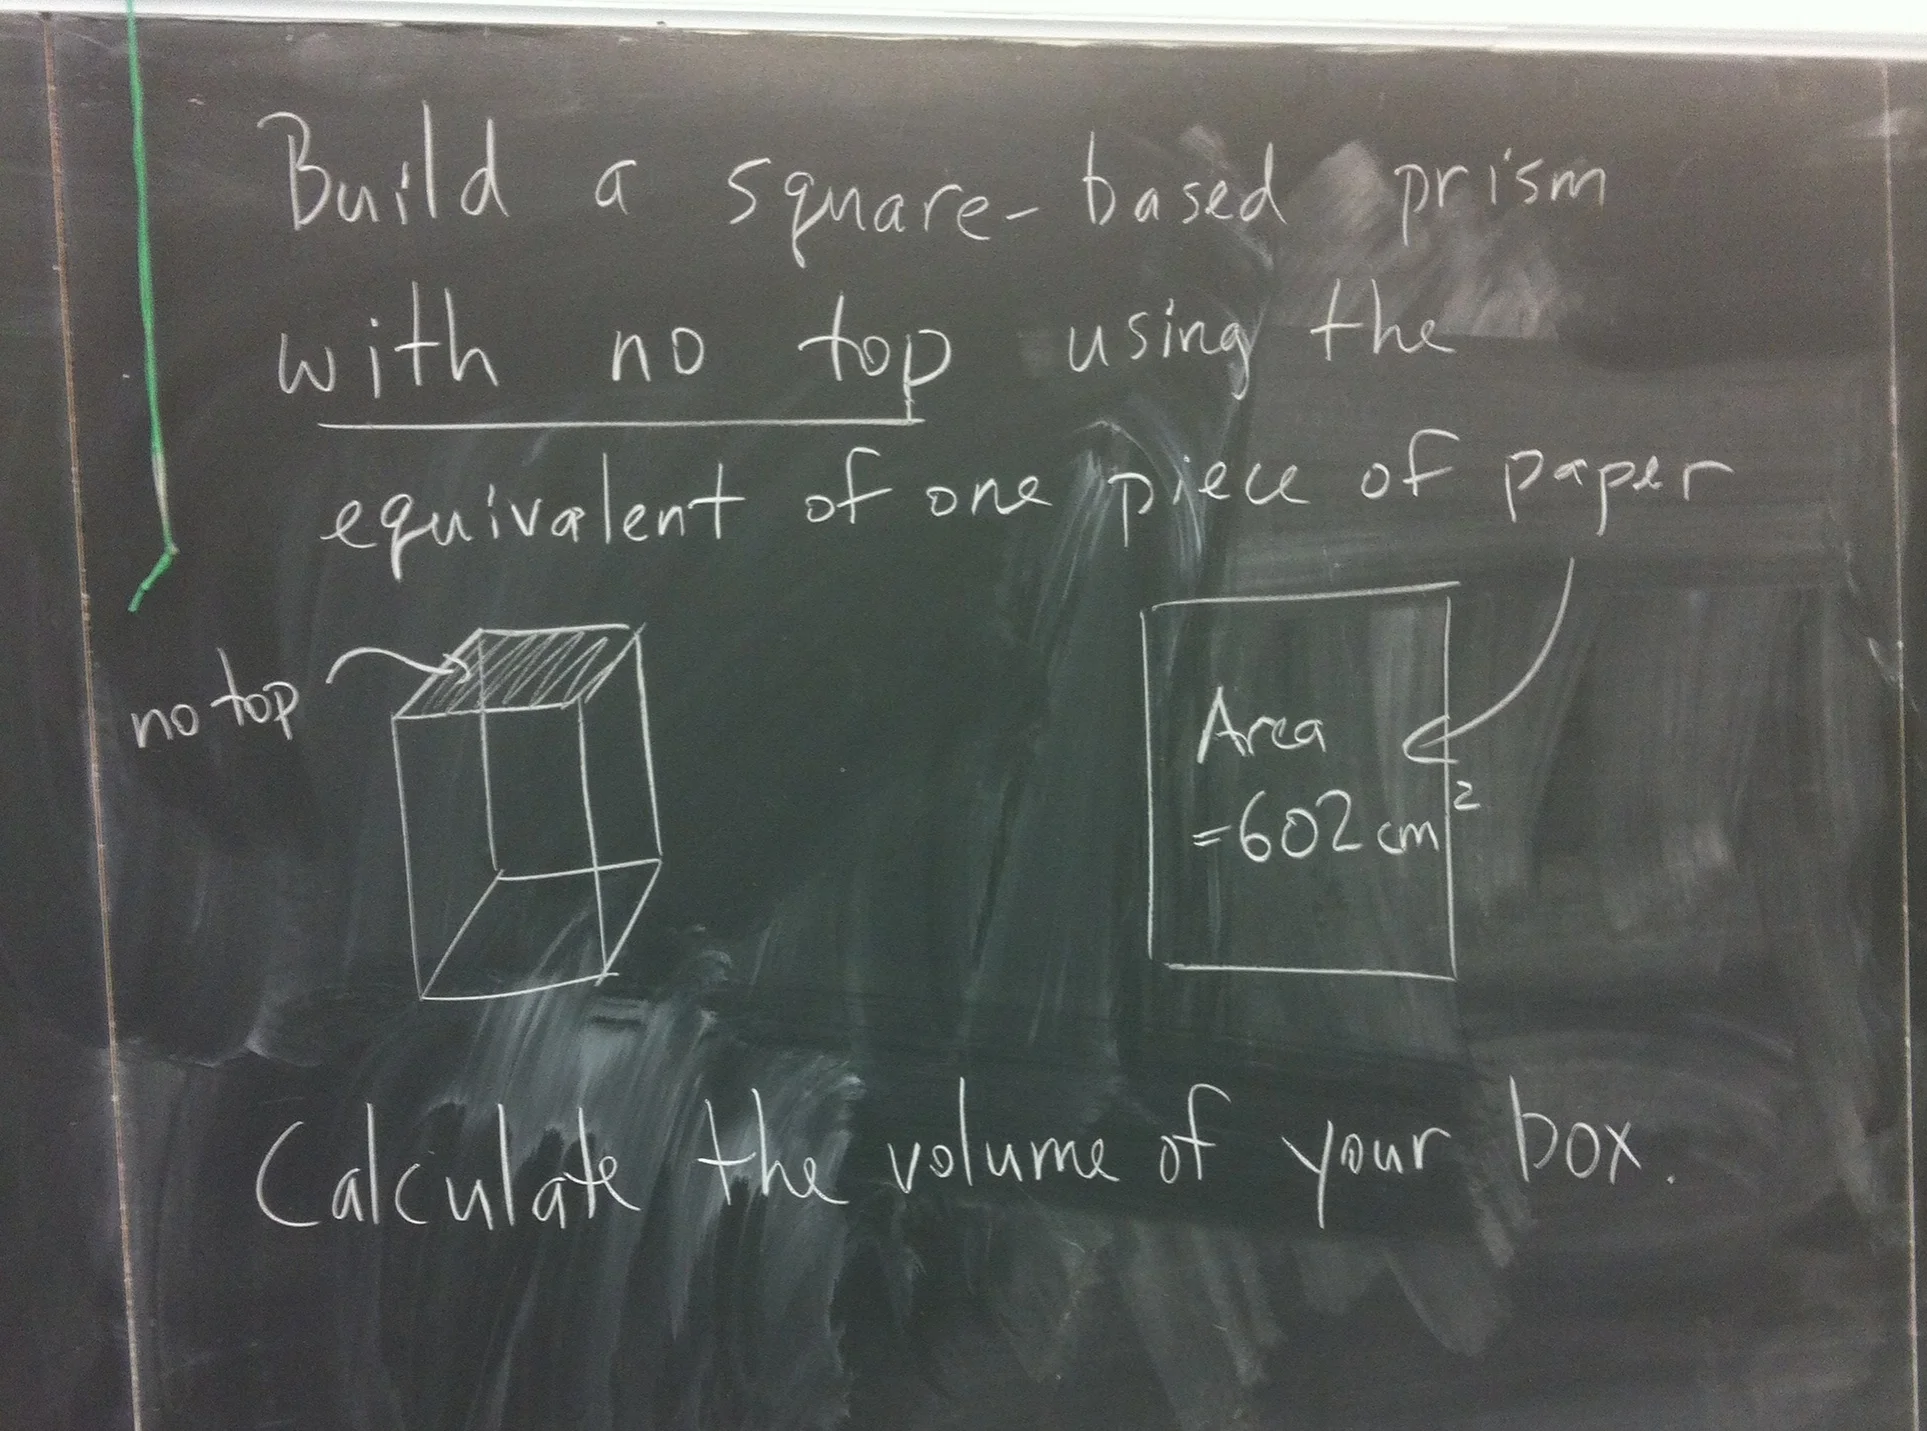 Build a square-based prism
with no top using the
equivalent of one piece of paper
no top
Area
=602 cm²
Calculate the volume of your box.